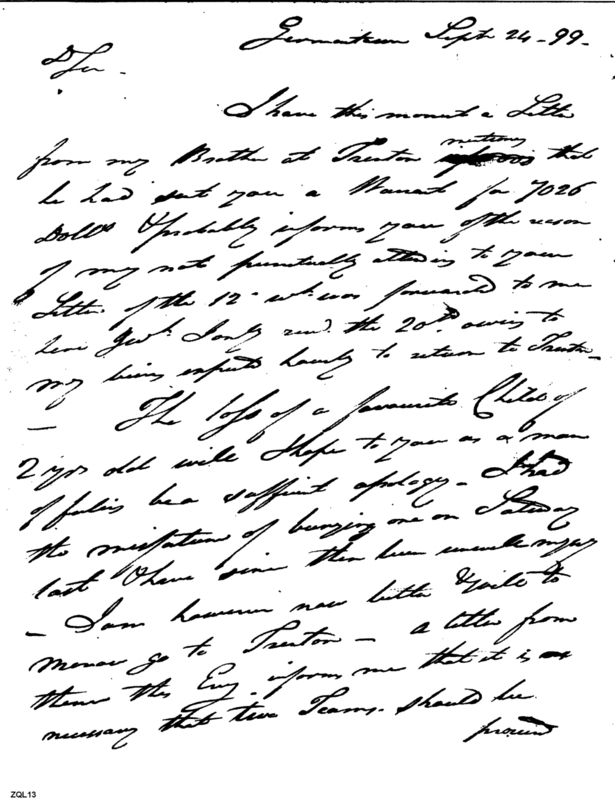 Germantown Sept 24 - 99 -
Dr Sir -
I have this moment a Letter
from my Brother at Trenton that
he had sent you a Warrant for 7026
Dolls & probably informs you of the reason
of my not punctually attending to your
Letter of the 12th wh. was forwarded to me
here I only recd. the 20th owing to
my being expected hourly to return to Trenton -
- The loss of a favourite Child of
2 yrs old will I hope to you as a man
of feelings be a sufficient apology - I had
the misfortune of burying one on Saturday
last & have since then been unwell myself
- I am however now better & will to
morrow go to Trenton - a letter from
thence this Eveg. informs me that it is
necessary that two Teams should be
procured
ZQL13